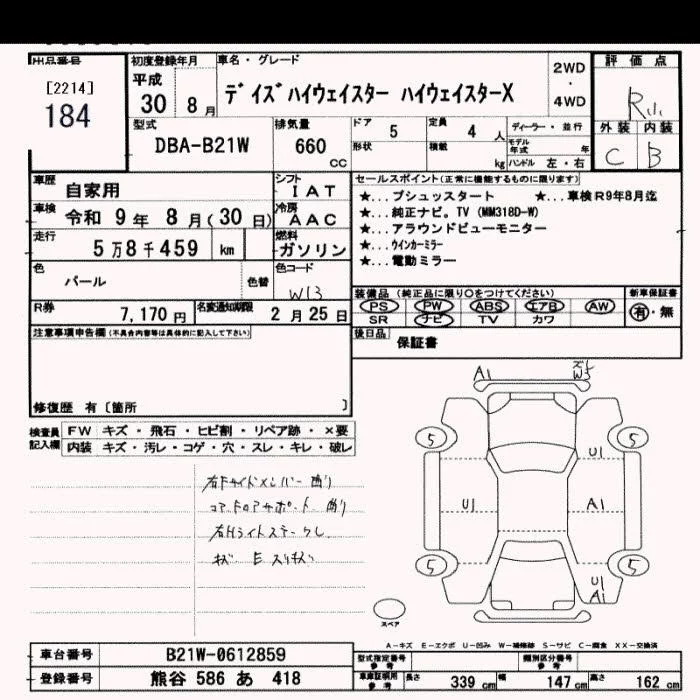 出品番号
[2214]
184
初度登録年月
平成
30 8月
車名・グレード
デイズハイウェイスター ハイウェイスターX
2WD
・
4WD
評価点
外装 内装
C B
型式
DBA-B21W
排気量
660
CC
ドア
5
定員
4人
形状
積載
kg
ディーラー・並行
モデル年式 年
ハンドル 左・右
車歴
自家用
車検
令和 9年 8月(30日)
走行
5万8千459 km
色
パール
色替
シフト
IAT
冷房
AAC
燃料
ガソリン
色コード
W13
R券
7,170円
名変通知期限
2月25日
セールスポイント(正常に機能するものに限ります)
★...プシュッスタート ★...車検R9年8月迄
★...純正ナビ。TV (MM318D-W)
★...アラウンドビューモニター
★...ウインカーミラー
★...電動ミラー
装備品(純正品に限り○をつけてください)
新車保証書
PS PW ABS エアB AW
SR ナビ TV カワ
有・無
後日品
保証書
注意事項申告欄(不具合内容等は具体的に記入して下さい)
修復歴 有〔箇所 〕
検査員記入欄
FW キズ・飛石・ヒビ割・リペア跡・×要
内装 キズ・汚レ・コゲ・穴・スレ・キレ・破レ
A1
5 5
U1
U1 A1
5 5
U1
A1
スペア
A-キズ E-エクボ U-凹み W-補修跡 S-サビ C-腐食 XX-交換済
車台番号 B21W-0612859
登録番号 熊谷 586 あ 418
型式指定番号 参考
類別区分番号 参考
車庫証明用 参考
長さ 339cm 幅 147cm 高さ 162cm